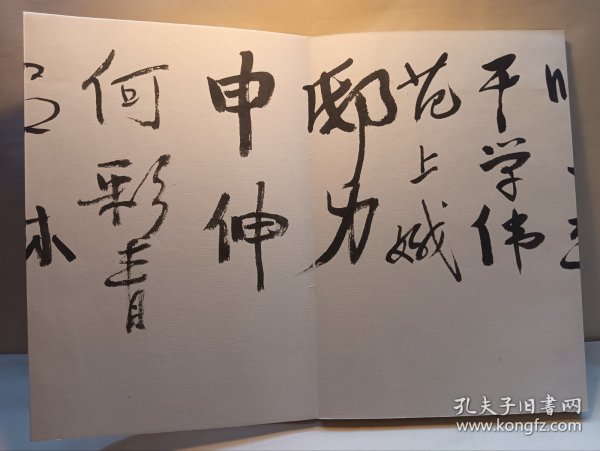 干学伟
范上娥
邸力
申伸
何彩青
孔夫子旧书网
www.kongfz.com